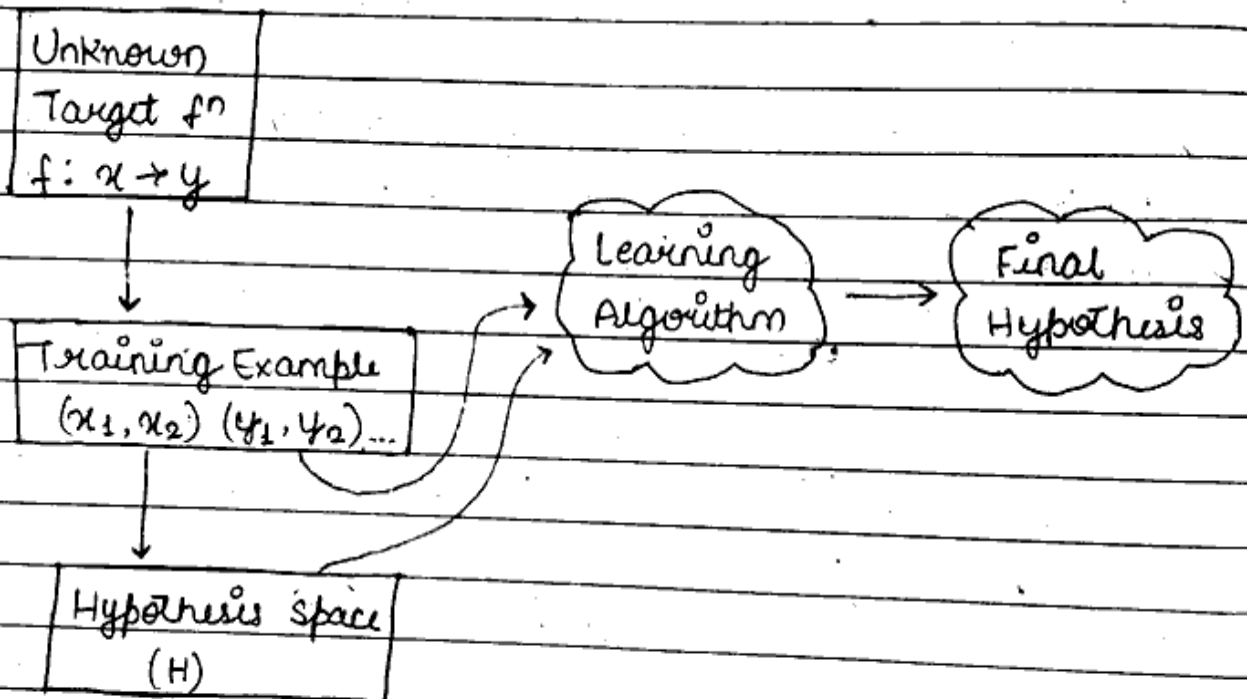 Unknown
Target fn
f: x → y
Training Example
(x1, x2) (y1, y2)...
Hypothesis space
(H)
Learning
Algorithm
Final
Hypothesis